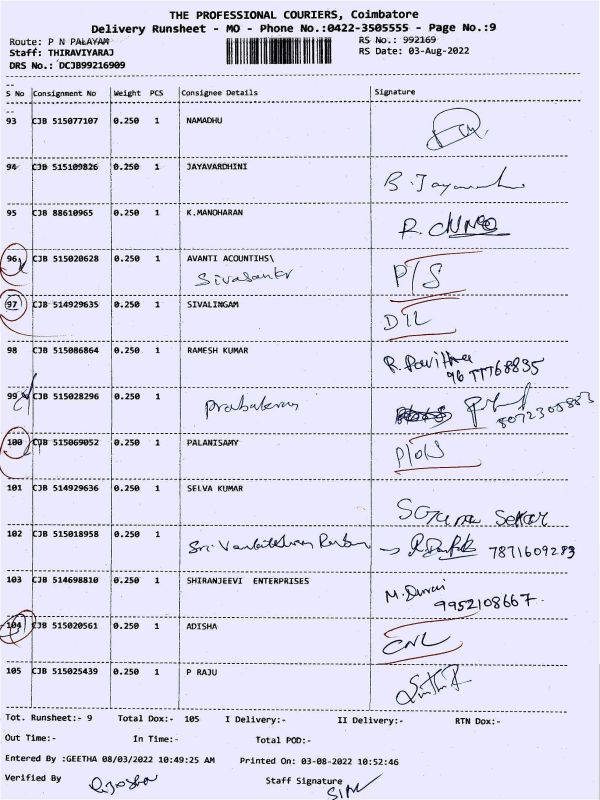 THE PROFESSIONAL COURIERS, Coimbatore
Delivery Runsheet - MO - Phone No.:0422-3505555 - Page No.:9
Route: P N PALAYAM
RS No.: 992169
Staff: THIRAVIYARAJ
RS Date: 03-Aug-2022
DRS No.: DCJB99216909
S No Consignment No Weight PCS Consignee Details Signature
93 CJB 515077107 0.250 1 NAMADHU
94 CJB 515109826 0.250 1 JAYAVARDHINI
95 CJB 88610965 0.250 1 K.MANOHARAN
96 CJB 515020628 0.250 1 AVANTI ACOUNTIHS\
P/S
97 CJB 514929635 0.250 1 SIVALINGAM
D/L
98 CJB 515086864 0.250 1 RAMESH KUMAR
R. Pavithra
96 77768835
99 CJB 515028296 0.250 1 Prabakaran
100 CJB 515069052 0.250 1 PALANISAMY
101 CJB 514929636 0.250 1 SELVA KUMAR
Sekar
102 CJB 515018958 0.250 1
7871609283
103 CJB 514698810 0.250 1 SHIRANJEEVI ENTERPRISES
9952108667.
104 CJB 515020561 0.250 1 ADISHA
CNL
105 CJB 515025439 0.250 1 P RAJU
Tot. Runsheet:- 9 Total Dox:- 105 I Delivery:- II Delivery:- RTN Dox:-
Out Time:- In Time:- Total POD:-
Entered By :GEETHA 08/03/2022 10:49:25 AM Printed On: 03-08-2022 10:52:46
Verified By Staff Signature